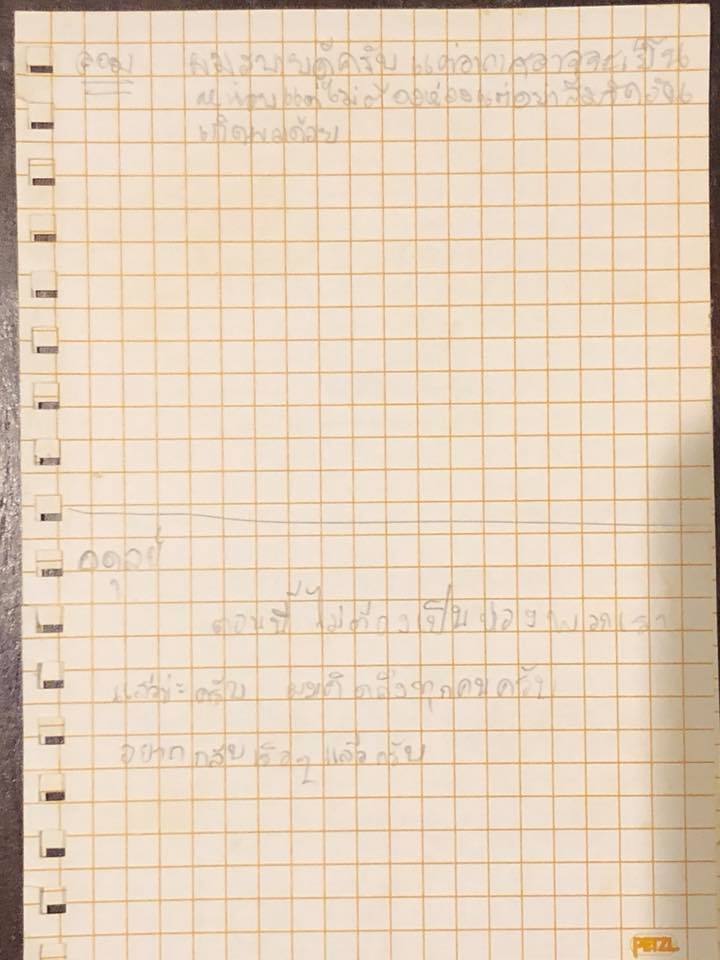 ดอม ผมสบายดีครับ แต่อากาศอาจจะเย็น
หน่อย แต่ไม่ต้องห่วง แต่อย่าลืมจัดวัน
เกิดผมด้วย
อดุลย์
ตอนนี้ไม่ต้องเป็นห่วงพวกเรา
แล้วนะครับ ผมคิดถึงทุกคนครับ
อยากกลับเร็วๆ แล้วครับ
PETZL